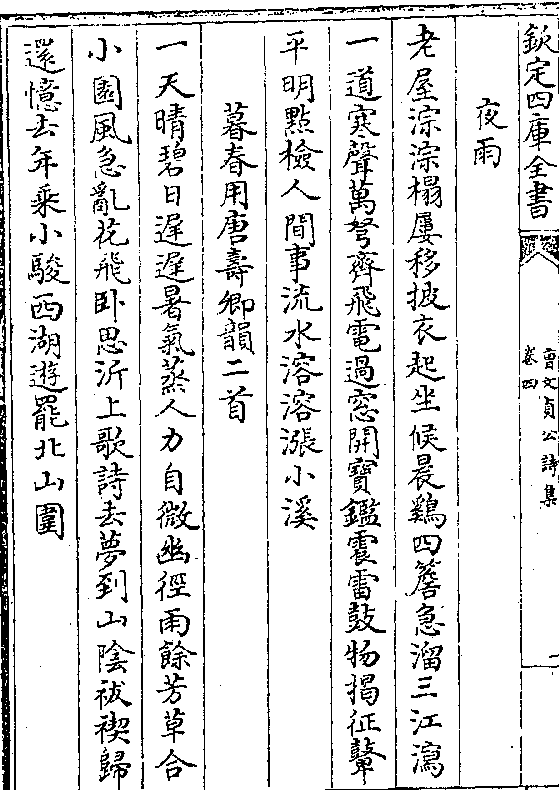 欽定四庫全書
曹文貞公詩集
卷四
夜雨
老屋淙淙榻屢移披衣起坐候晨鷄四簷急溜三江瀉
一道寒聲萬弩齊飛電過窓開寶鑑震雷鼓物揭征鼙
平明點檢人間事流水溶溶漲小溪
暮春用唐壽卿韻二首
一天晴碧日遲遲暑氣蒸人力自微幽徑雨餘芳草合
小園風急亂花飛卧思沂上歌詩去夢到山陰祓禊歸
還憶去年乘小駿西湖遊罷北山圍